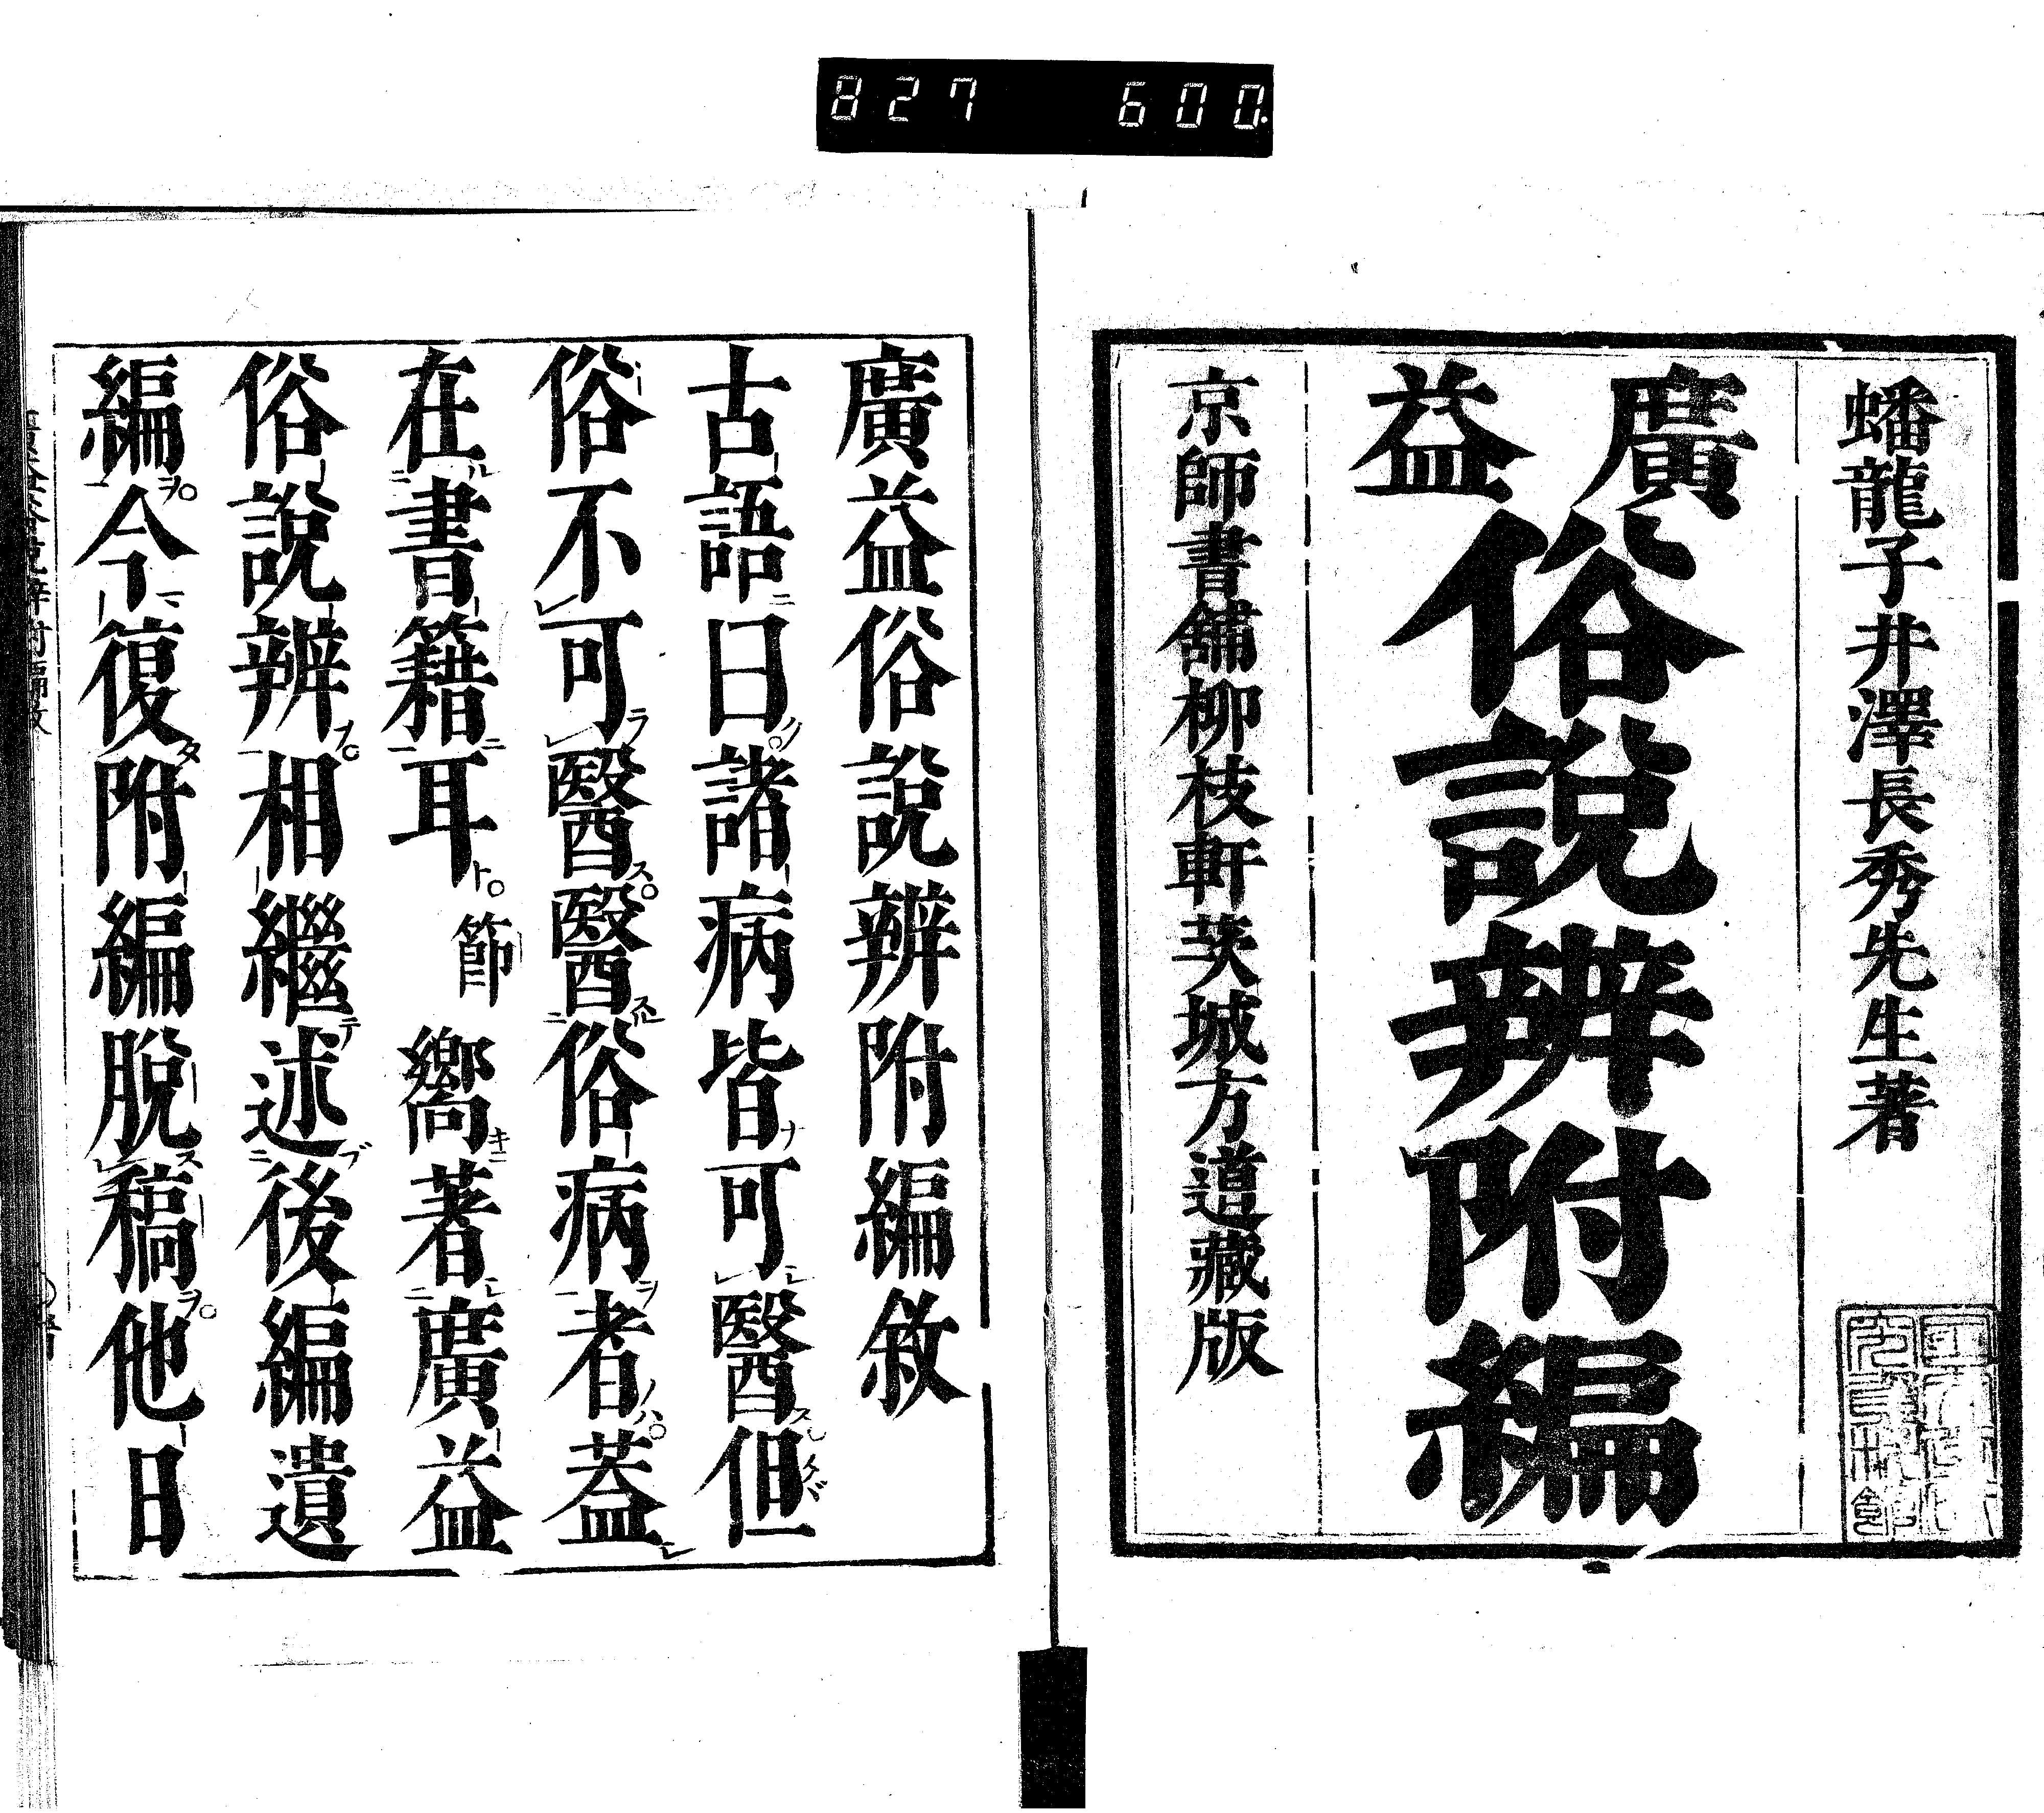 827 600.
蟠龍子井澤長秀先生著
廣益
俗說辨附編
京師書舗柳枝軒茨城方道藏版
廣益俗說辨附編敘
古語曰諸病皆可醫但
俗不可醫醫俗病者葢
在書籍耳節嚮著廣益
俗說辨相繼述後編遺
編今復附編脫稿他日